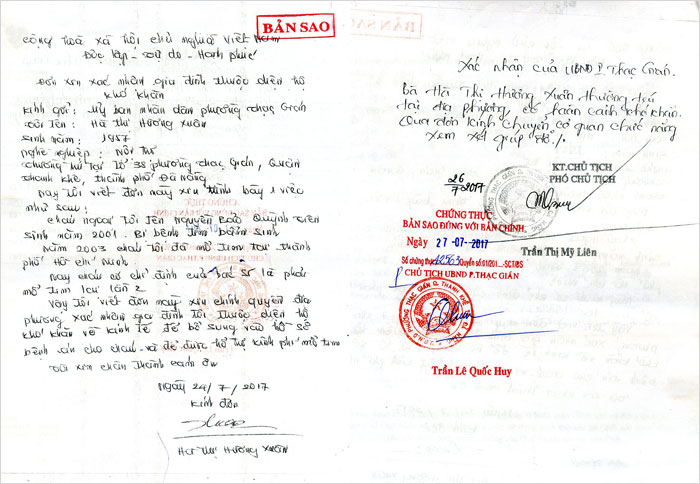 BẢN SAO
Cộng hoà xã hội chủ nghĩa Việt Nam
Độc lập - Tự do - Hạnh phúc
Đơn xin xác nhận gia đình thuộc diện hộ
khó khăn
Kính gửi: Uỷ ban nhân dân phường Thạc Gián
Tôi tên: Hà Thị Hương Xuân
Sinh năm: 1957
Nghề nghiệp: Nội trợ
Thường trú tại tổ 38 phường Thạc Gián, Quận
Thanh Khê, thành phố Đà Nẵng
Nay tôi viết đơn này xin trình bày 1 việc
như sau:
Cháu ngoại tôi tên Nguyễn Bảo Quỳnh Tiên
sinh năm 2001. Bị bệnh tim bẩm sinh
Năm 2003 cháu tôi đã mổ tim tại thành
phố Hồ Chí Minh
Nay cháu có chỉ định của bác sĩ là phải
mổ tim lại lần 2
Vậy tôi viết đơn này xin chính quyền địa
phương xác nhận gia đình tôi thuộc diện hộ
khó khăn về kinh tế để bổ sung vào hồ sơ
bệnh án cho cháu và để được hỗ trợ kinh phí mổ tim
Tôi xin chân thành cảm ơn
Ngày 24/7/2017
Kính đơn
Hà Thị Hương Xuân
Xác nhận của UBND P. Thạc Gián.
Bà Hà Thị Hương Xuân thường trú
tại địa phương, có hoàn cảnh khó khăn.
Của đơn kính chuyển cơ quan chức năng
xem xét giúp đỡ./.
26
/7-2017
KT.CHỦ TỊCH
PHÓ CHỦ TỊCH
Trần Thị Mỹ Liên
CHỨNG THỰC
BẢN SAO ĐÚNG VỚI BẢN CHÍNH.
Ngày 27-07-2017
Số chứng thực 12563 Quyển số:01/201...-SCT/BS
P CHỦ TỊCH UBND P.THẠC GIÁN
Trần Lê Quốc Huy